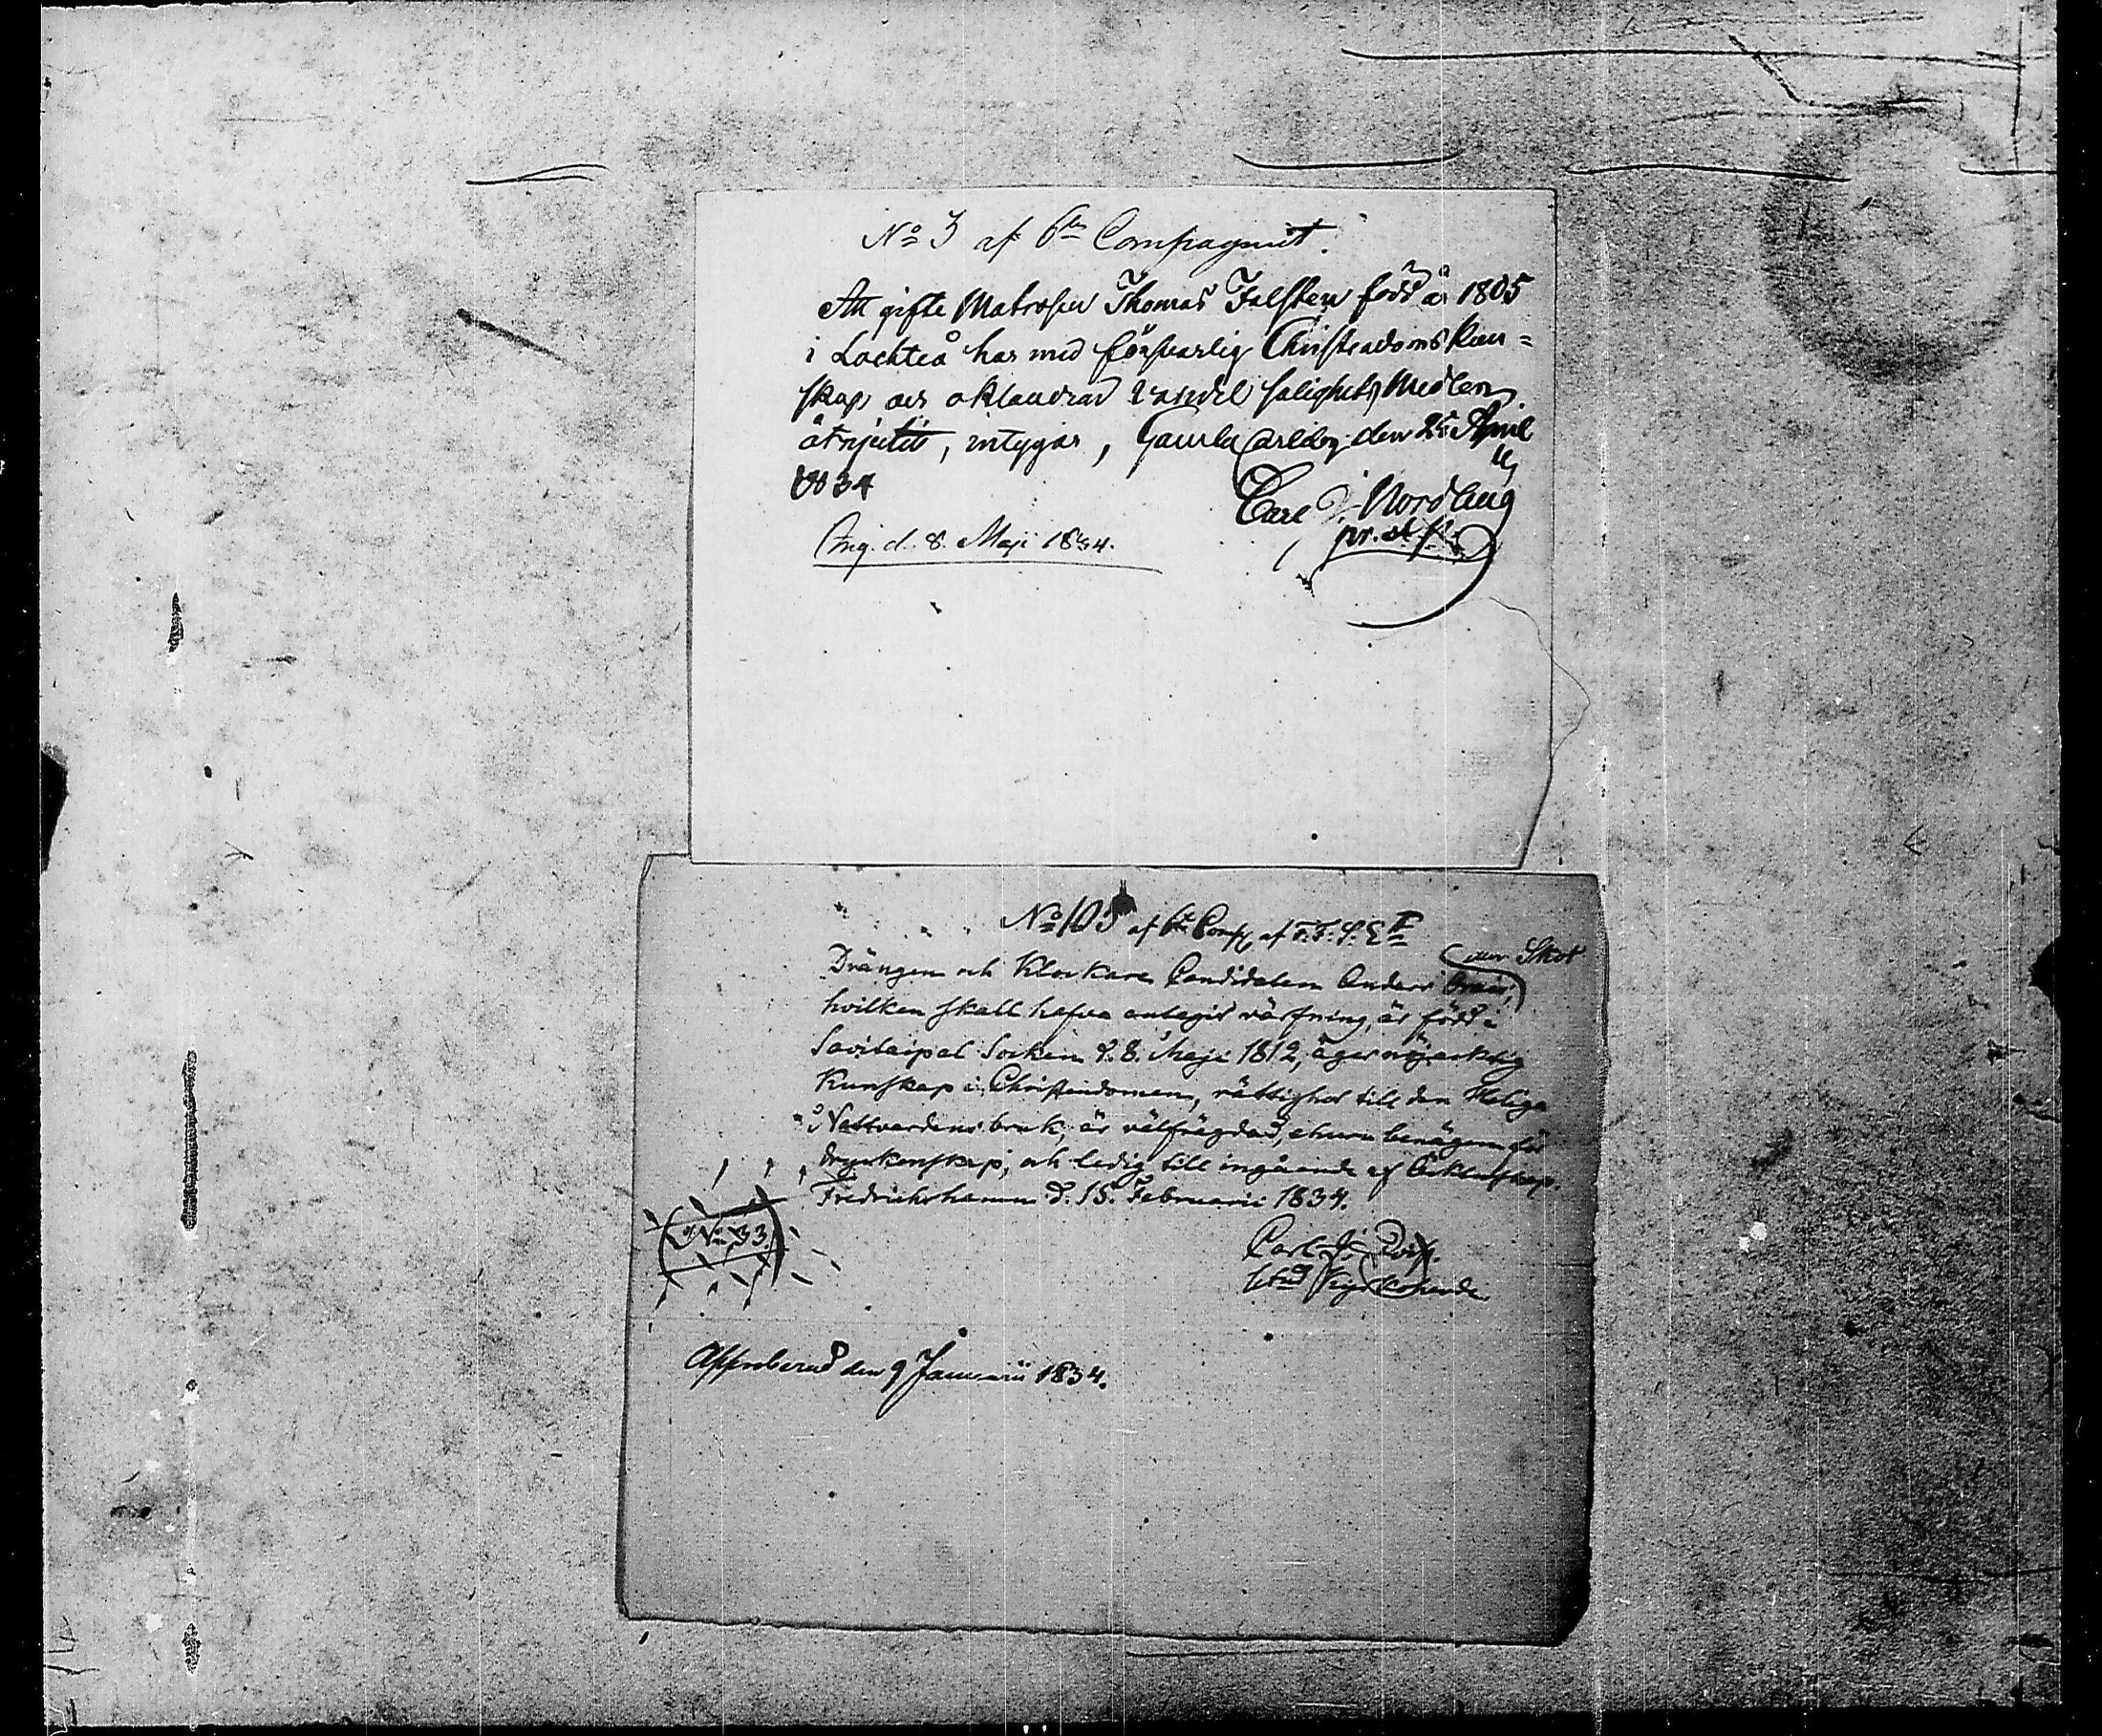 No 3 af 6te Compagniet.
Att gifte Matrosen Thomas Falsten född år 1805
i Lochteå har med försvarlig Christendoms kun=
skap och oklandrad vandel salighets Medlen
åtnjutit, intygar, Gamla Carleby den 25 April
1834
Carl J. Nordlung
pr. st.
Ang. d. 8. Maji 1834.
No 103 af 6te Comp af F. F. S. E
eller Skot
Drängen och Klockare Candidaten Anders
hvilken skall hafva antagit värfning, är född i
Savitaipal Socken d. 8. Maji 1812, äger nöjacktig
Kunskap i Christendomen, rättighet till den Heliga
Nattvardens bruk, är välfrägdad, ehuru benägen för
dryckenskap, och ledig till ingående af Äcktenskap.
Fredrichshamn d. 15. Februarii 1834.
No 33.
Carl
Kyrkoherde
Approberad den 9 Januarii 1834.